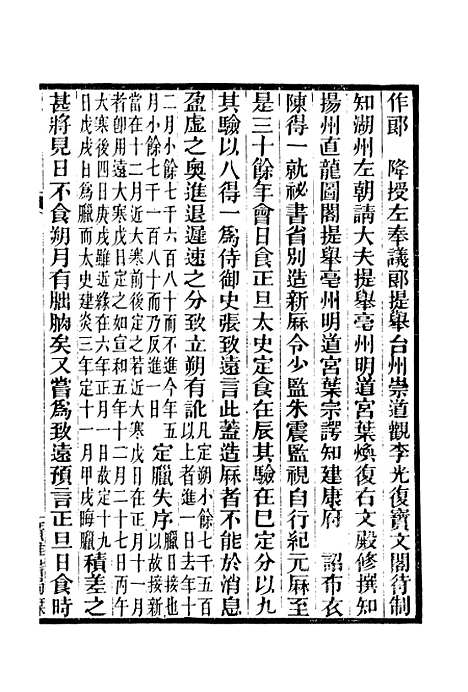 作郞　降授左奉議郞提舉台州崇道觀李光復寶文閣待制
知湖州左朝請大夫提舉亳州明道宮葉煥復右文殿修撰知
揚州直龍圖閣提舉亳州明道宮葉宗諤知建康府　詔布衣
陳得一就祕書省別造新厤令少監朱震監視自行紀元厤至
是三十餘年會日食正旦太史定食在辰其驗在巳定分以九
其驗以八得一爲侍御史張致遠言此蓋造厤者不能於消息
盈虛之奥進退遲速之分致立朔有訛凡定朔小餘七千五百以上者進一日去年十
二月小餘七千六百八十而不進今年五月小餘七千一百八十而乃反進一日定臘失序臘日接也以故接新
當在十二月近大寒前後定之若近大寒戊日在正月十一月者卽用遠大寒戊日定之如宣和五年十二月二十七日丙午
大寒後四日庚戌雖近緣在六年正月一日故定十九日戊戌爲臘而太史建炎三年定十一月三十日甲戌晦臘積差之
甚將見日不食朔月有朏朒矣又嘗爲致遠預言正旦日食時